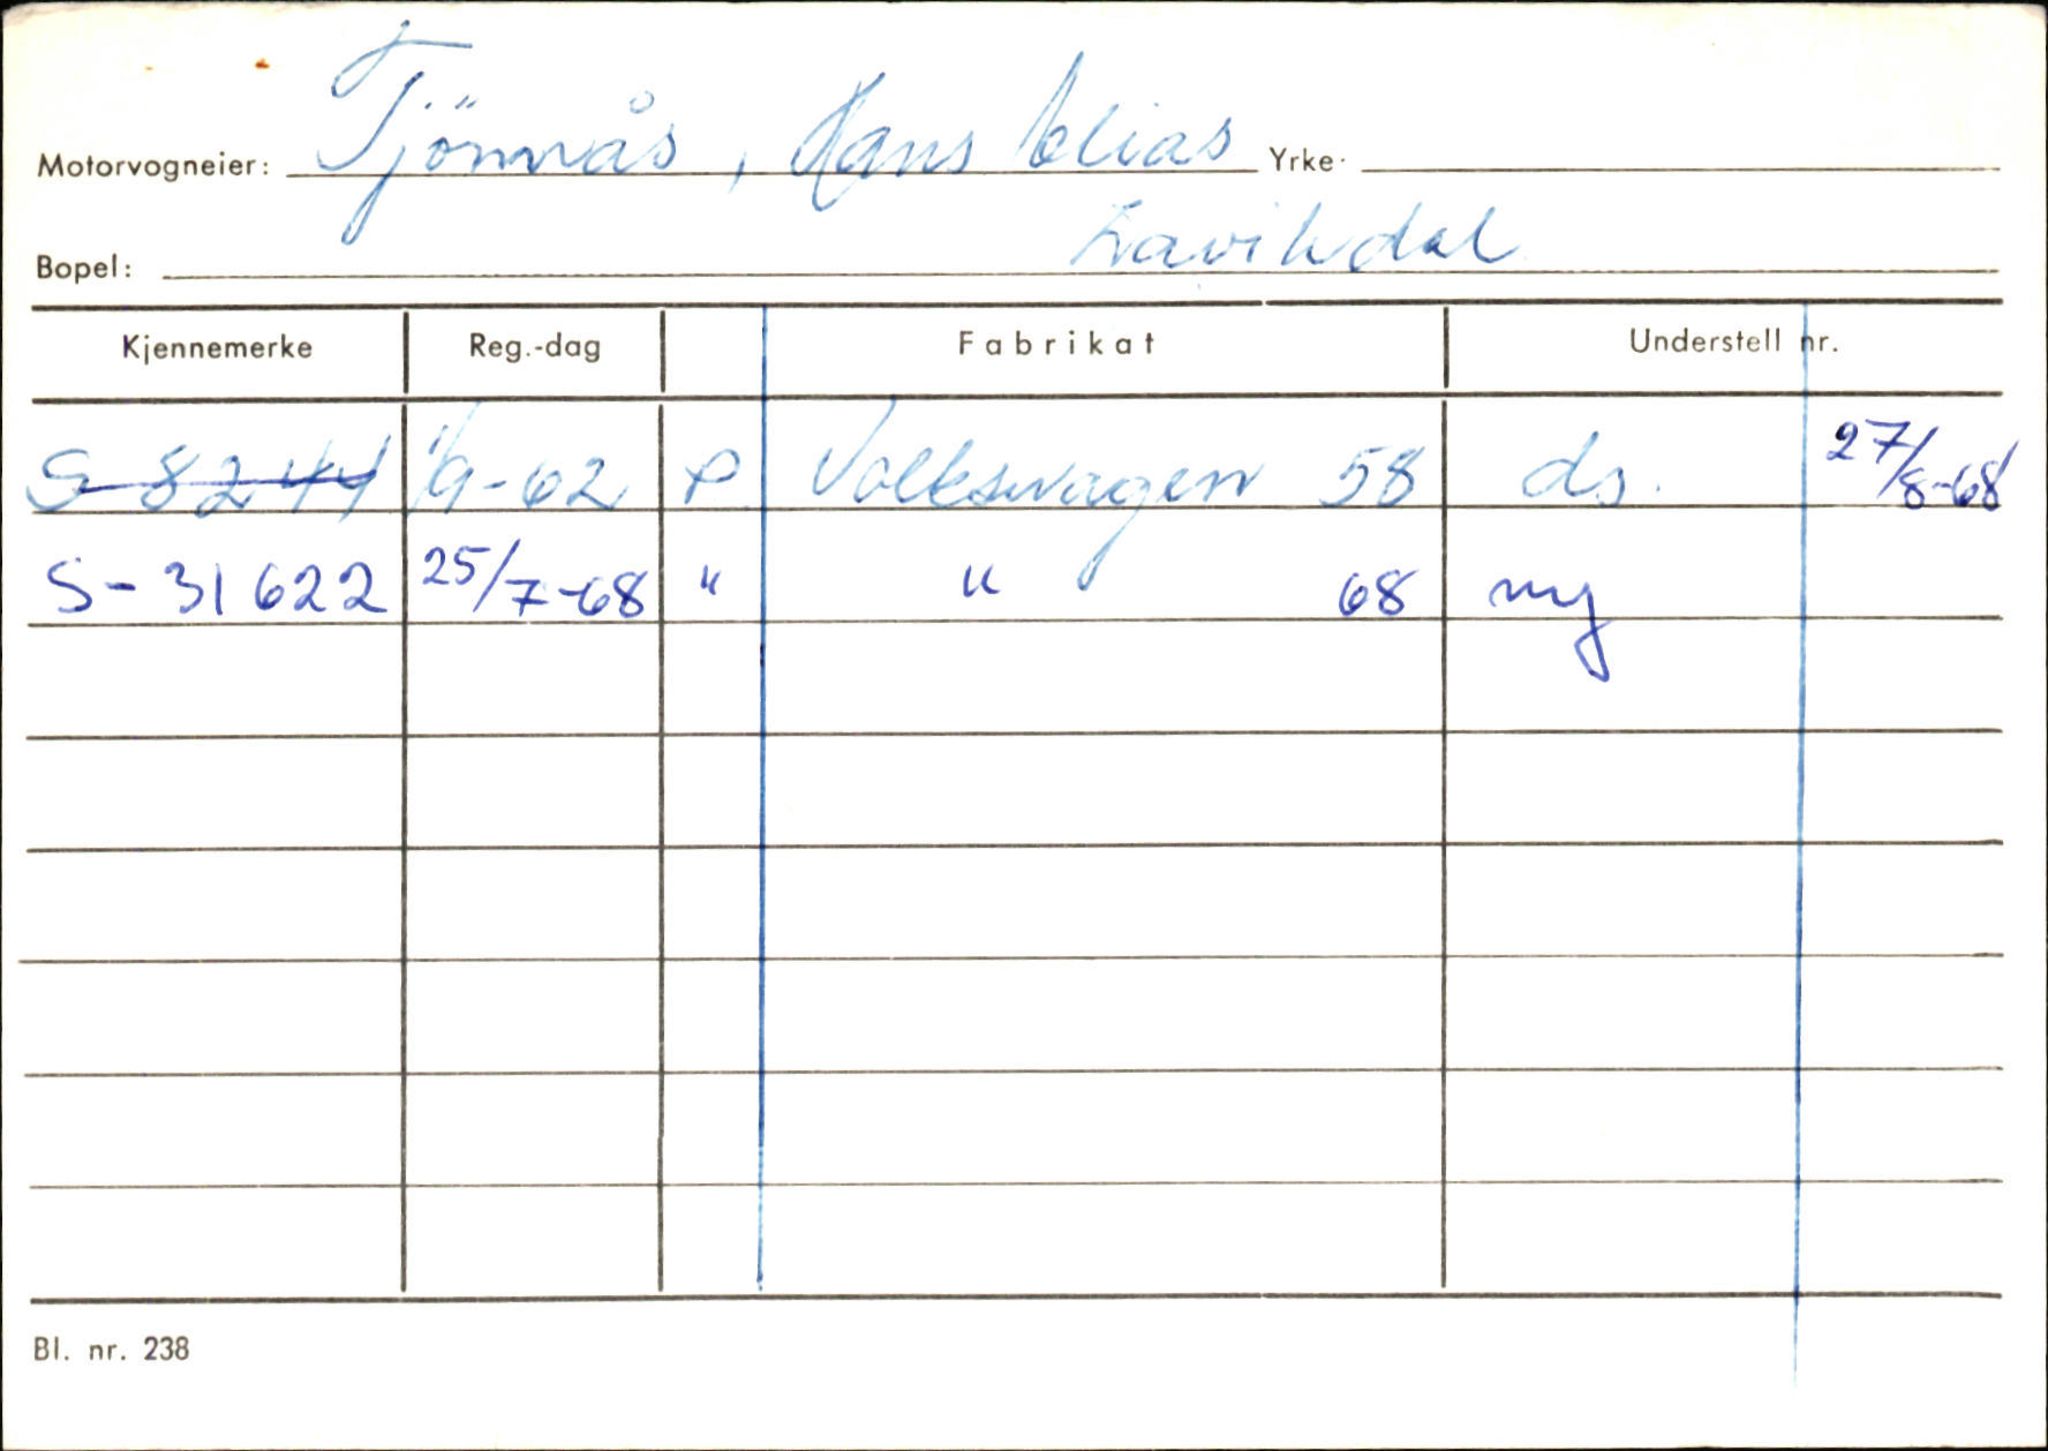 Motorvogneier: Tjönnås, Hans Elias Yrke:
Bopel: Lavikdal
Kjennemerke Reg.-dag Fabrikat Understell nr.
S-8244 1/9-62 P Volkswagen 58 ds. 27/8-68
S-31622 25/7-68 " " 68 ny
Bl. nr. 238